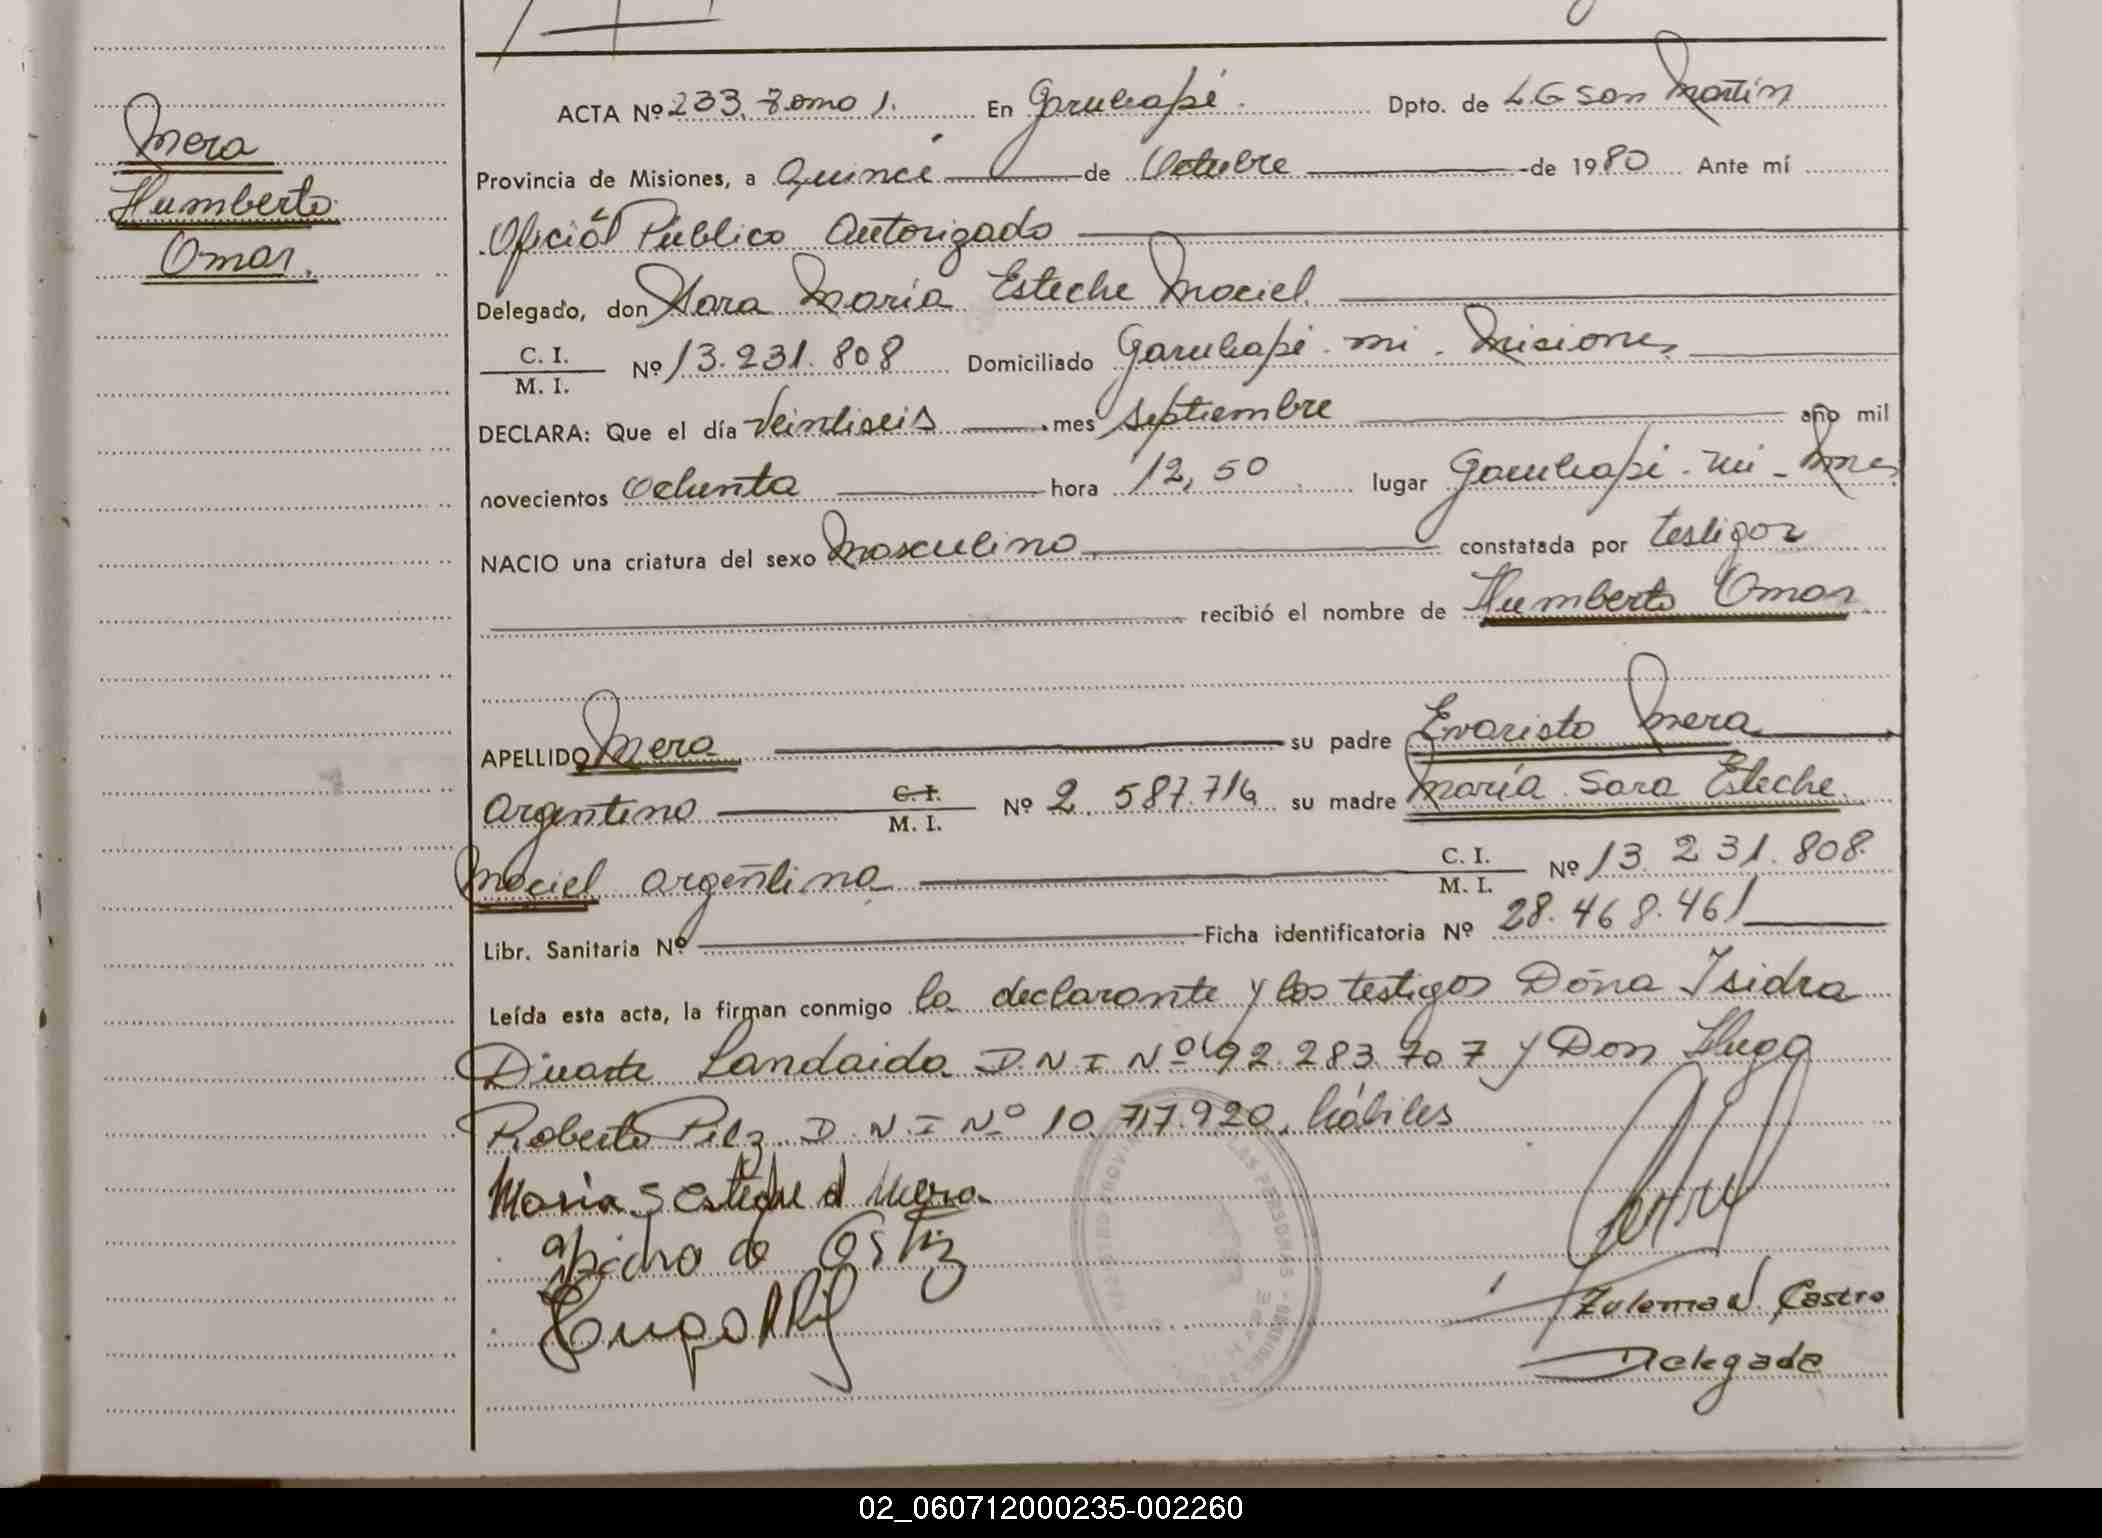 Mera
Humberto
Omar.
ACTA Nº 233. Tomo 1. En Garuhapé. Dpto. de L. G San Martín
Provincia de Misiones, a Quince de Octubre de 1980 Ante mí
Oficial Público Autorizado
Delegado, don Sara María Esteche Maciel
C. I.
M. I. Nº 13.231.808 Domiciliado Garuhapé - mi - Misiones
DECLARA: Que el día Veintiseis mes Septiembre año mil
novecientos Ochenta hora 12,50 lugar Garuhapé - mi - Mnes
NACIO una criatura del sexo Masculino constatada por testigos
recibió el nombre de Humberto Omar
APELLIDO Mera su padre Evaristo Mera
Argentino C. I. M. I. Nº 2.587.716 su madre María Sara Esteche
Maciel argentina C. I. M. I. Nº 13.231.808
Libr. Sanitaria Nº Ficha identificatoria Nº 28.468.461
Leída esta acta, la firman conmigo la declarante y los testigos Doña Isidra
Duarte Landaida D.N.I Nº 92.283.707 y Don Hugo
Roberto Pelz D.N.I Nº 10.717.920, hábiles
Maria S Esteche d Mera
de Ortiz
Zulema N. Castro
Delegada
02_060712000235-002260